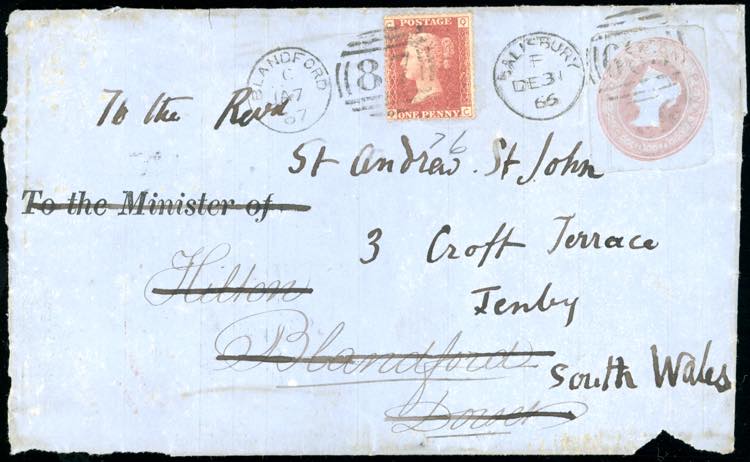 BLANDFORD
C
JA 7
67
8
POSTAGE
C Q
Q C
ONE PENNY
SALISBURY
F
DE 31
66
ONE PENNY
To the Revd
76
St Andrew St John
To the Minister of
3 Croft Terrace
Hilton
Tenby
Blandford
South Wales
Dorset